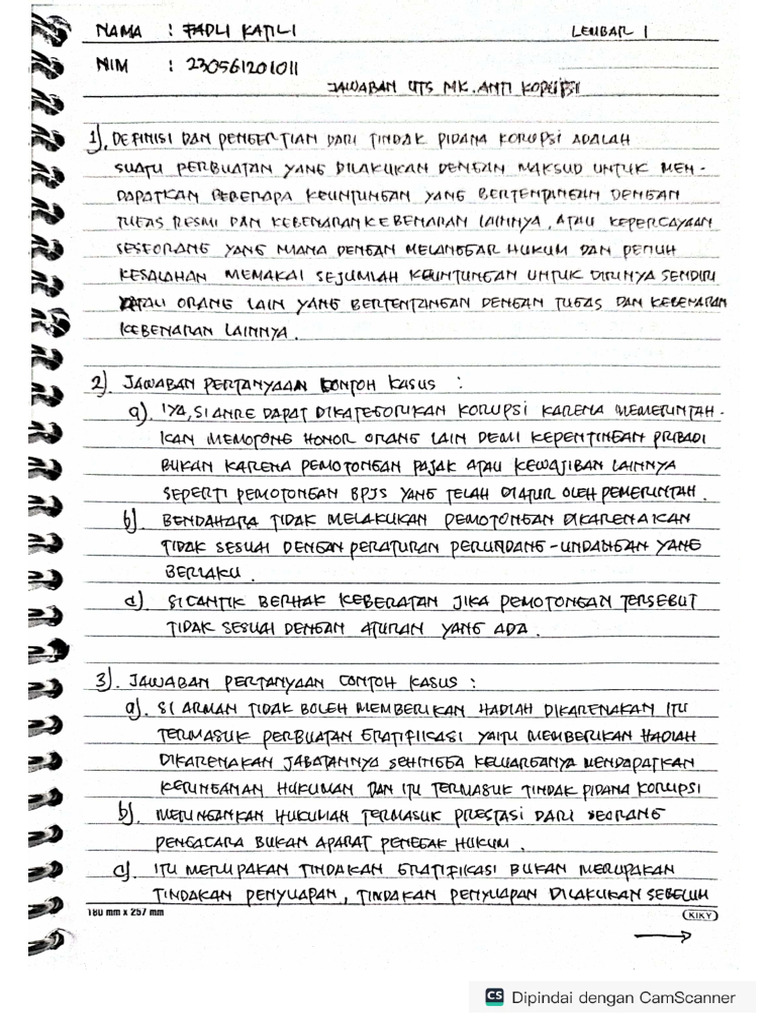 NAMA : FADLI KATILI LEMBAR 1
NIM : 230561201011
JAWABAN UTS MK. ANTI KORUPSI
1). DEFINISI DAN PENGERTIAN DARI TINDAK PIDANA KORUPSI ADALAH
SUATU PERBUATAN YANG DILAKUKAN DENGAN MAKSUD UNTUK MEN-
DAPATKAN BEBERAPA KEUNTUNGAN YANG BERTENTANGAN DENGAN
TUGAS RESMI DAN KEBENARAN KEBENARAN LAINNYA, ATAU KEPERCAYAAN
SESEORANG YANG MANA DENGAN MELANGGAR HUKUM DAN PENUH
KESALAHAN MEMAKAI SEJUMLAH KEUNTUNGAN UNTUK DIRINYA SENDIRI
ATAU ORANG LAIN YANG BERTENTANGAN DENGAN TUGAS DAN KEBENARAN
KEBENARAN LAINNYA.
2). JAWABAN PERTANYAAN CONTOH KASUS :
a). IYA, SI ANRE DAPAT DIKATEGORIKAN KORUPSI KARENA MEMERINTAH-
KAN MEMOTONG HONOR ORANG LAIN DEMI KEPENTINGAN PRIBADI
BUKAN KARENA PEMOTONGAN PAJAK ATAU KEWAJIBAN LAINNYA
SEPERTI PEMOTONGAN BPJS YANG TELAH DIATUR OLEH PEMERINTAH.
b). BENDAHARA TIDAK MELAKUKAN PEMOTONGAN DIKARENAKAN
TIDAK SESUAI DENGAN PERATURAN PERUNDANG-UNDANGAN YANG
BERLAKU.
d). SI CANTIK BERHAK KEBERATAN JIKA PEMOTONGAN TERSEBUT
TIDAK SESUAI DENGAN ATURAN YANG ADA.
3). JAWABAN PERTANYAAN CONTOH KASUS :
a). SI ARMAN TIDAK BOLEH MEMBERIKAN HADIAH DIKARENAKAN ITU
TERMASUK PERBUATAN GRATIFIKASI YAITU MEMBERIKAN HADIAH
DIKARENAKAN JABATANNYA SEHINGGA KELUARGANYA MENDAPATKAN
KERINGANAN HUKUMAN DAN ITU TERMASUK TINDAK PIDANA KORUPSI
b). MERINGANKAN HUKUMAN TERMASUK PRESTASI DARI SEORANG
PENGACARA BUKAN APARAT PENEGAK HUKUM.
c). ITU MERUPAKAN TINDAKAN GRATIFIKASI BUKAN MERUPAKAN
TINDAKAN PENYUAPAN, TINDAKAN PENYUAPAN DILAKUKAN SEBELUM
180 mm x 257 mm KIKY
CS Dipindai dengan CamScanner